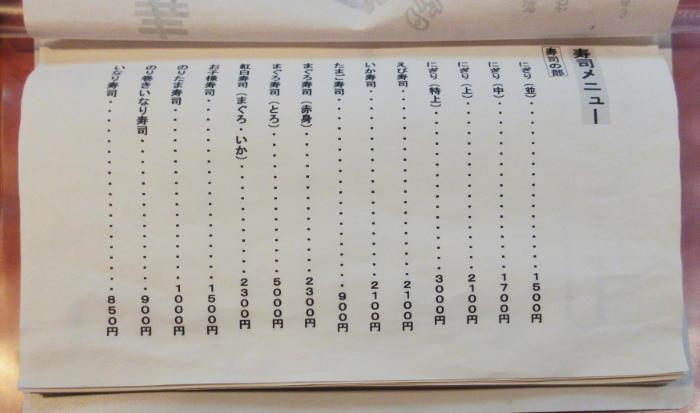 寿司メニュー
寿司の部
にぎり（並）・・・・・・・・・・・・・・・・・・・・・１５００円
にぎり（中）・・・・・・・・・・・・・・・・・・・・・１７００円
にぎり（上）・・・・・・・・・・・・・・・・・・・・・２１００円
にぎり（特上）・・・・・・・・・・・・・・・・・・・・３０００円
えび寿司・・・・・・・・・・・・・・・・・・・・・・・２１００円
いか寿司・・・・・・・・・・・・・・・・・・・・・・・２１００円
たまご寿司・・・・・・・・・・・・・・・・・・・・・・９００円
まぐろ寿司（赤身）・・・・・・・・・・・・・・・・・・２３００円
まぐろ寿司（とろ）・・・・・・・・・・・・・・・・・・５０００円
紅白寿司（まぐろ・いか）・・・・・・・・・・・・・・・２３００円
お子様寿司・・・・・・・・・・・・・・・・・・・・・・１５００円
のりたま寿司・・・・・・・・・・・・・・・・・・・・・１０００円
のり巻きいなり寿司・・・・・・・・・・・・・・・・・・９００円
いなり寿司・・・・・・・・・・・・・・・・・・・・・・８５０円